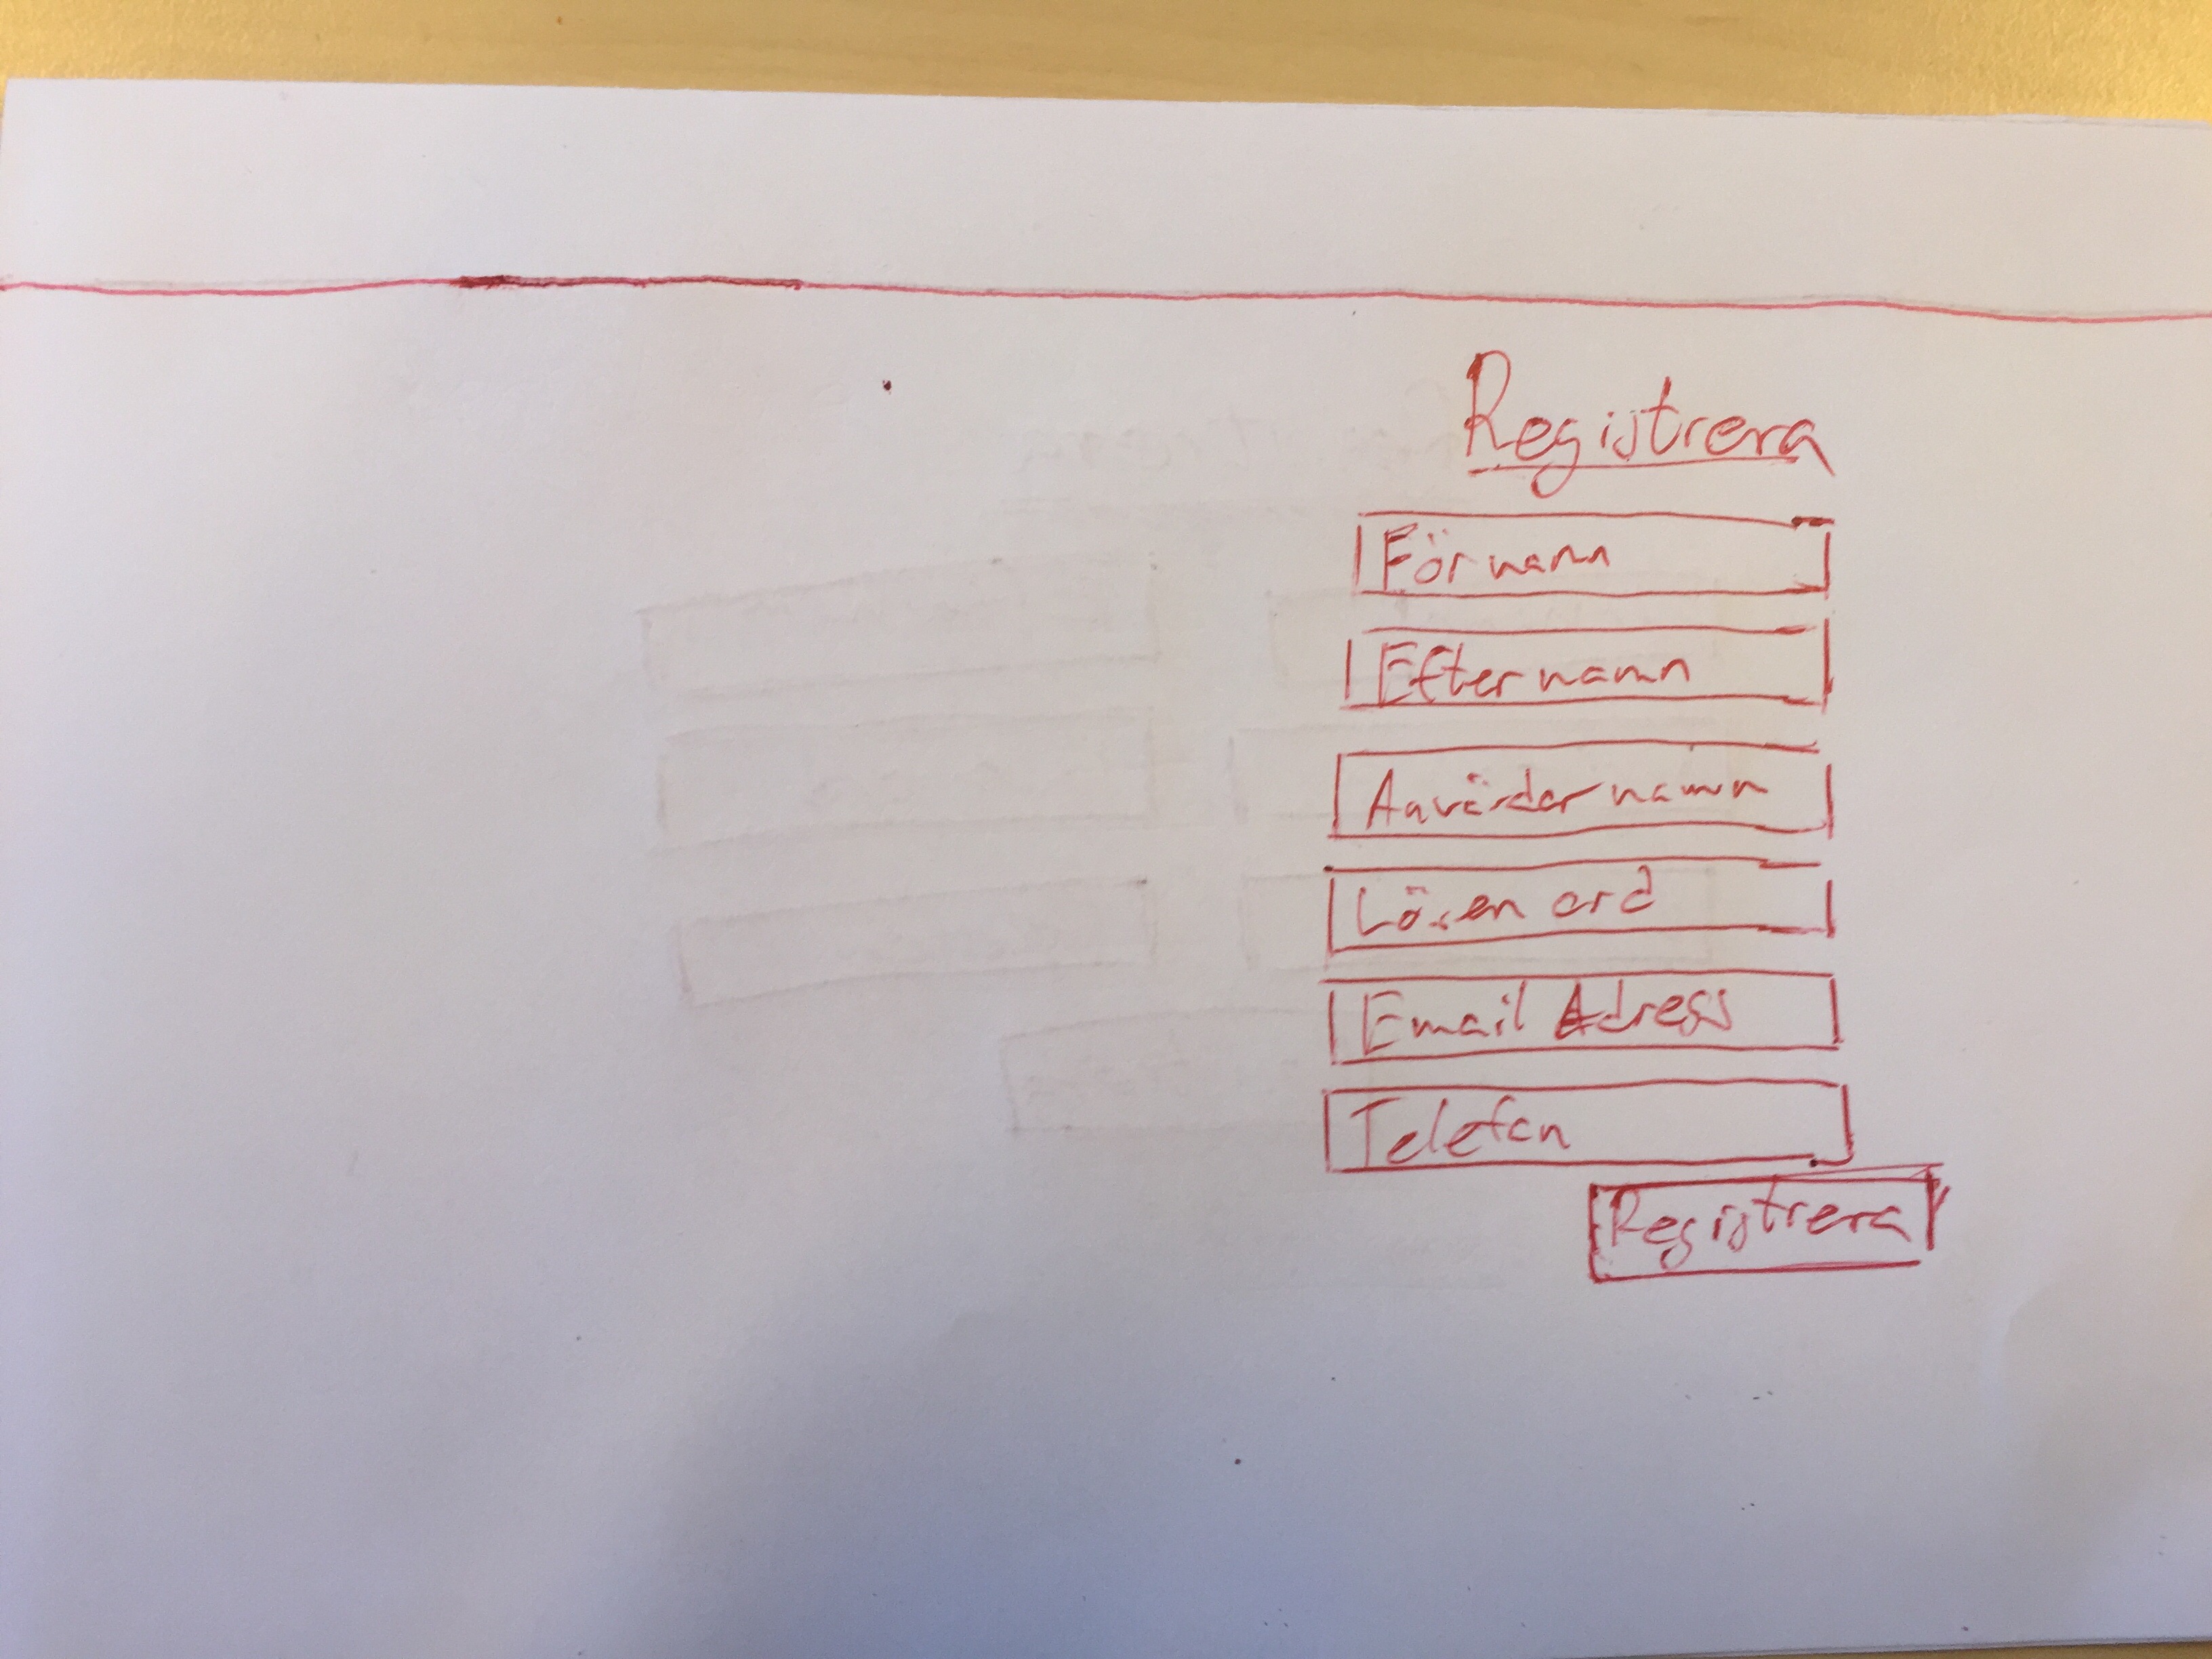 Registrera
Förnamn
Efternamn
Användarnamn
Lösenord
Email Adress
Telefon
Registrera